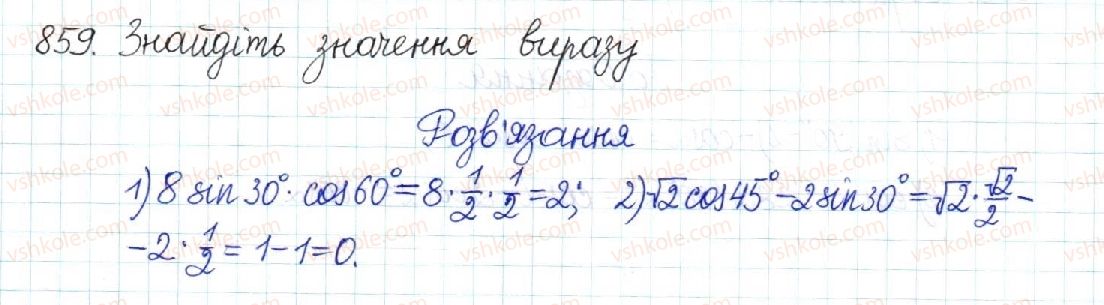 859. Знайдіть значення виразу
Розв'язання
1) 8 sin 30° · cos 60° = 8 · 1/2 · 1/2 = 2; 2) √2 cos 45° − 2 sin 30° = √2 · √2/2 −
− 2 · 1/2 = 1 − 1 = 0.